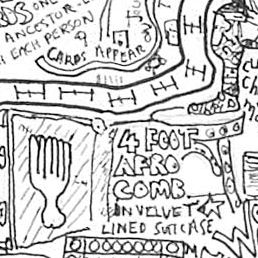 DS ONE
ANCESTOR-
EACH PERSON
CARDS APPEAR
4 FOOT
AFRO
COMB
IN VELVET
LINED SUITCASE